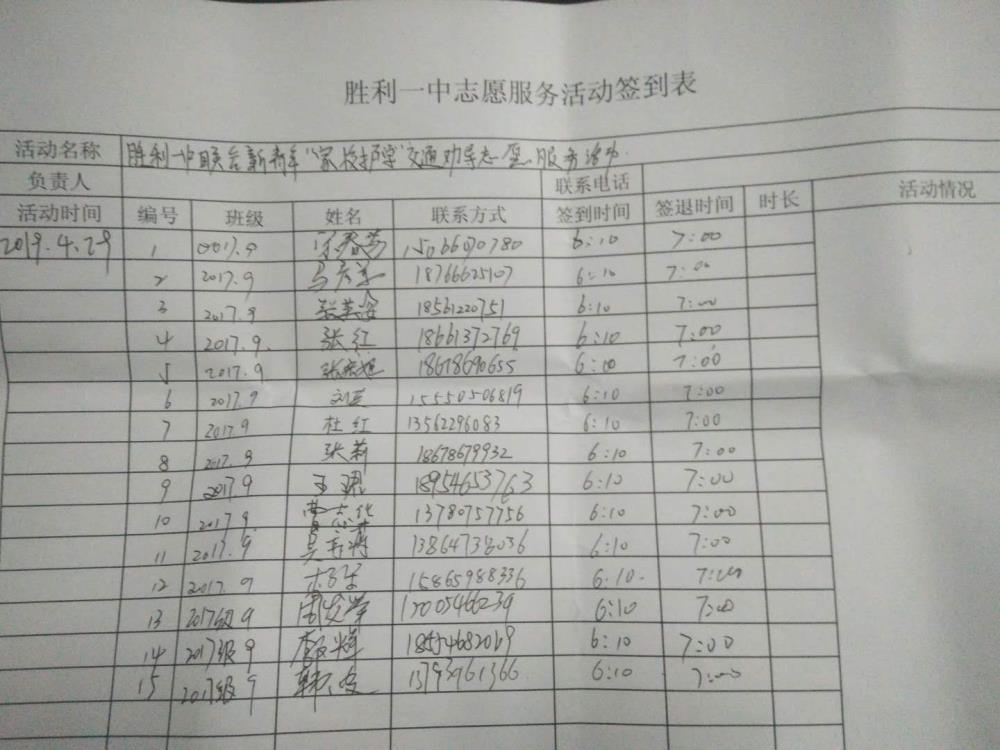 胜利一中志愿服务活动签到表
活动名称 胜利一中联合新青年"家校护学"交通劝导志愿服务活动.
负责人 联系电话
活动时间 编号 班级 姓名 联系方式 签到时间 签退时间 时长 活动情况
2019.4.29 1 2017.9 15066070780 6:10 7:00
2 2017.9 18766625107 6:10 7:00
3 2017.9 张美姿 18561220751 6:10 7:00
4 2017.9. 张红 18661372769 6:10 7:00
5 2017.9 18678690655 6:10 7:00
6 2017.9 刘英 15550506819 6:10 7:00
7 2017.9 杜红 13562296083 6:10 7:00
8 2017.9 张莉 18678679932 6:10 7:00
9 2017.9 王珺 18954653763 6:10 7:00
10 2017.9. 13780757756 6:10 7:00
11 2017.9 13864738036 6:10 7:00
12 2017.9 15865988336 6.10. 7:00
13 2017级9 15005466239 6:10 7:00
14 2017级9 顾辉 18554682069 6:10 7:00
15 2017级9 13793961366 6:10 7:00